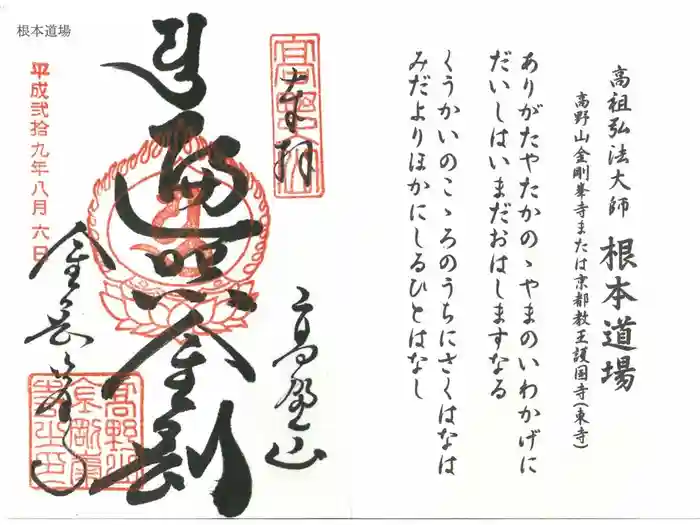 高祖弘法大師 根本道場
高野山金剛峯寺または京都教王護国寺(東寺)
ありがたやたかのゝやまのいわかげに
だいしはいまだおはしますなる
くうかいのこゝろのうちにさくはなは
みだよりほかにしるひとはなし
奉拝
高野山
遍照金剛
平成弐拾九年八月六日
根本道場